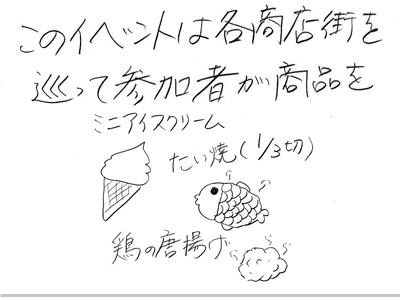 このイベントは各商店街を
巡って参加者が商品を
ミニアイスクリーム
たい焼(1/3切)
鶏の唐揚げ